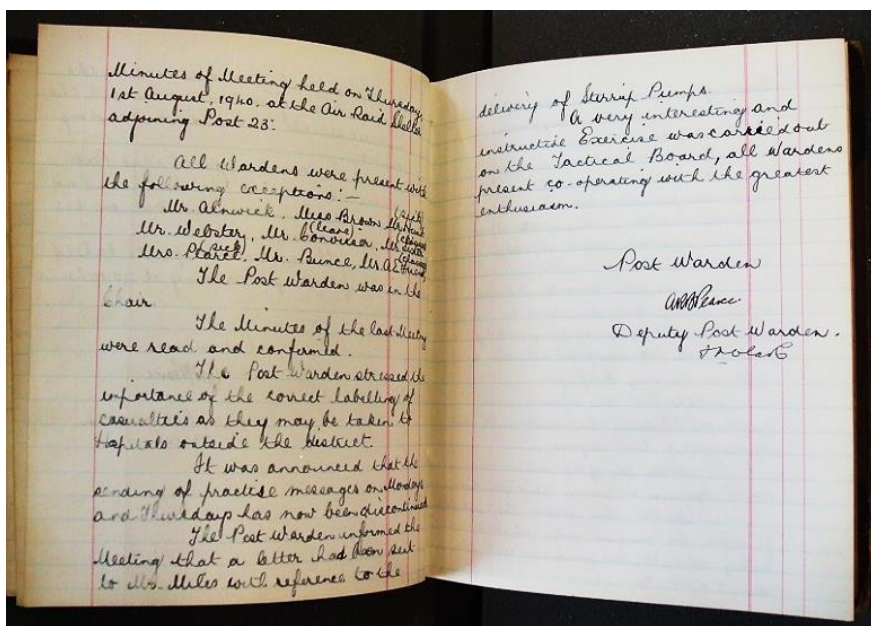 Minutes of Meeting held on Thursday,
1st August, 1940, at the Air Raid Shelter
adjoining Post 23:
All Wardens were present with
the following exceptions:—
(sick)
Mr. Alnwick, Miss Brown, Mr.
(leave)
Mr. Webster, Mr. Mr.
(sick)
Mrs. Mr. Bunce, Mr. A.E.
The Post Warden was in the
Chair
The Minutes of the last Meeting
were read and confirmed.
The Post Warden stressed the
importance of the correct labelling of
casualties as they may be taken to
Hospitals outside the district.
It was announced that the
sending of practise messages on Mondays
and Thursdays has now been discontinued
The Post Warden informed the
Meeting that a letter had been sent
to Mr. Miles with reference to the
delivery of Stirrip Pumps.
A very interesting and
instructive Exercise was carried out
on the Tactical Board, all Wardens
present co-operating with the greatest
enthusiasm.
Post Warden
Pearce.
Deputy Post Warden.